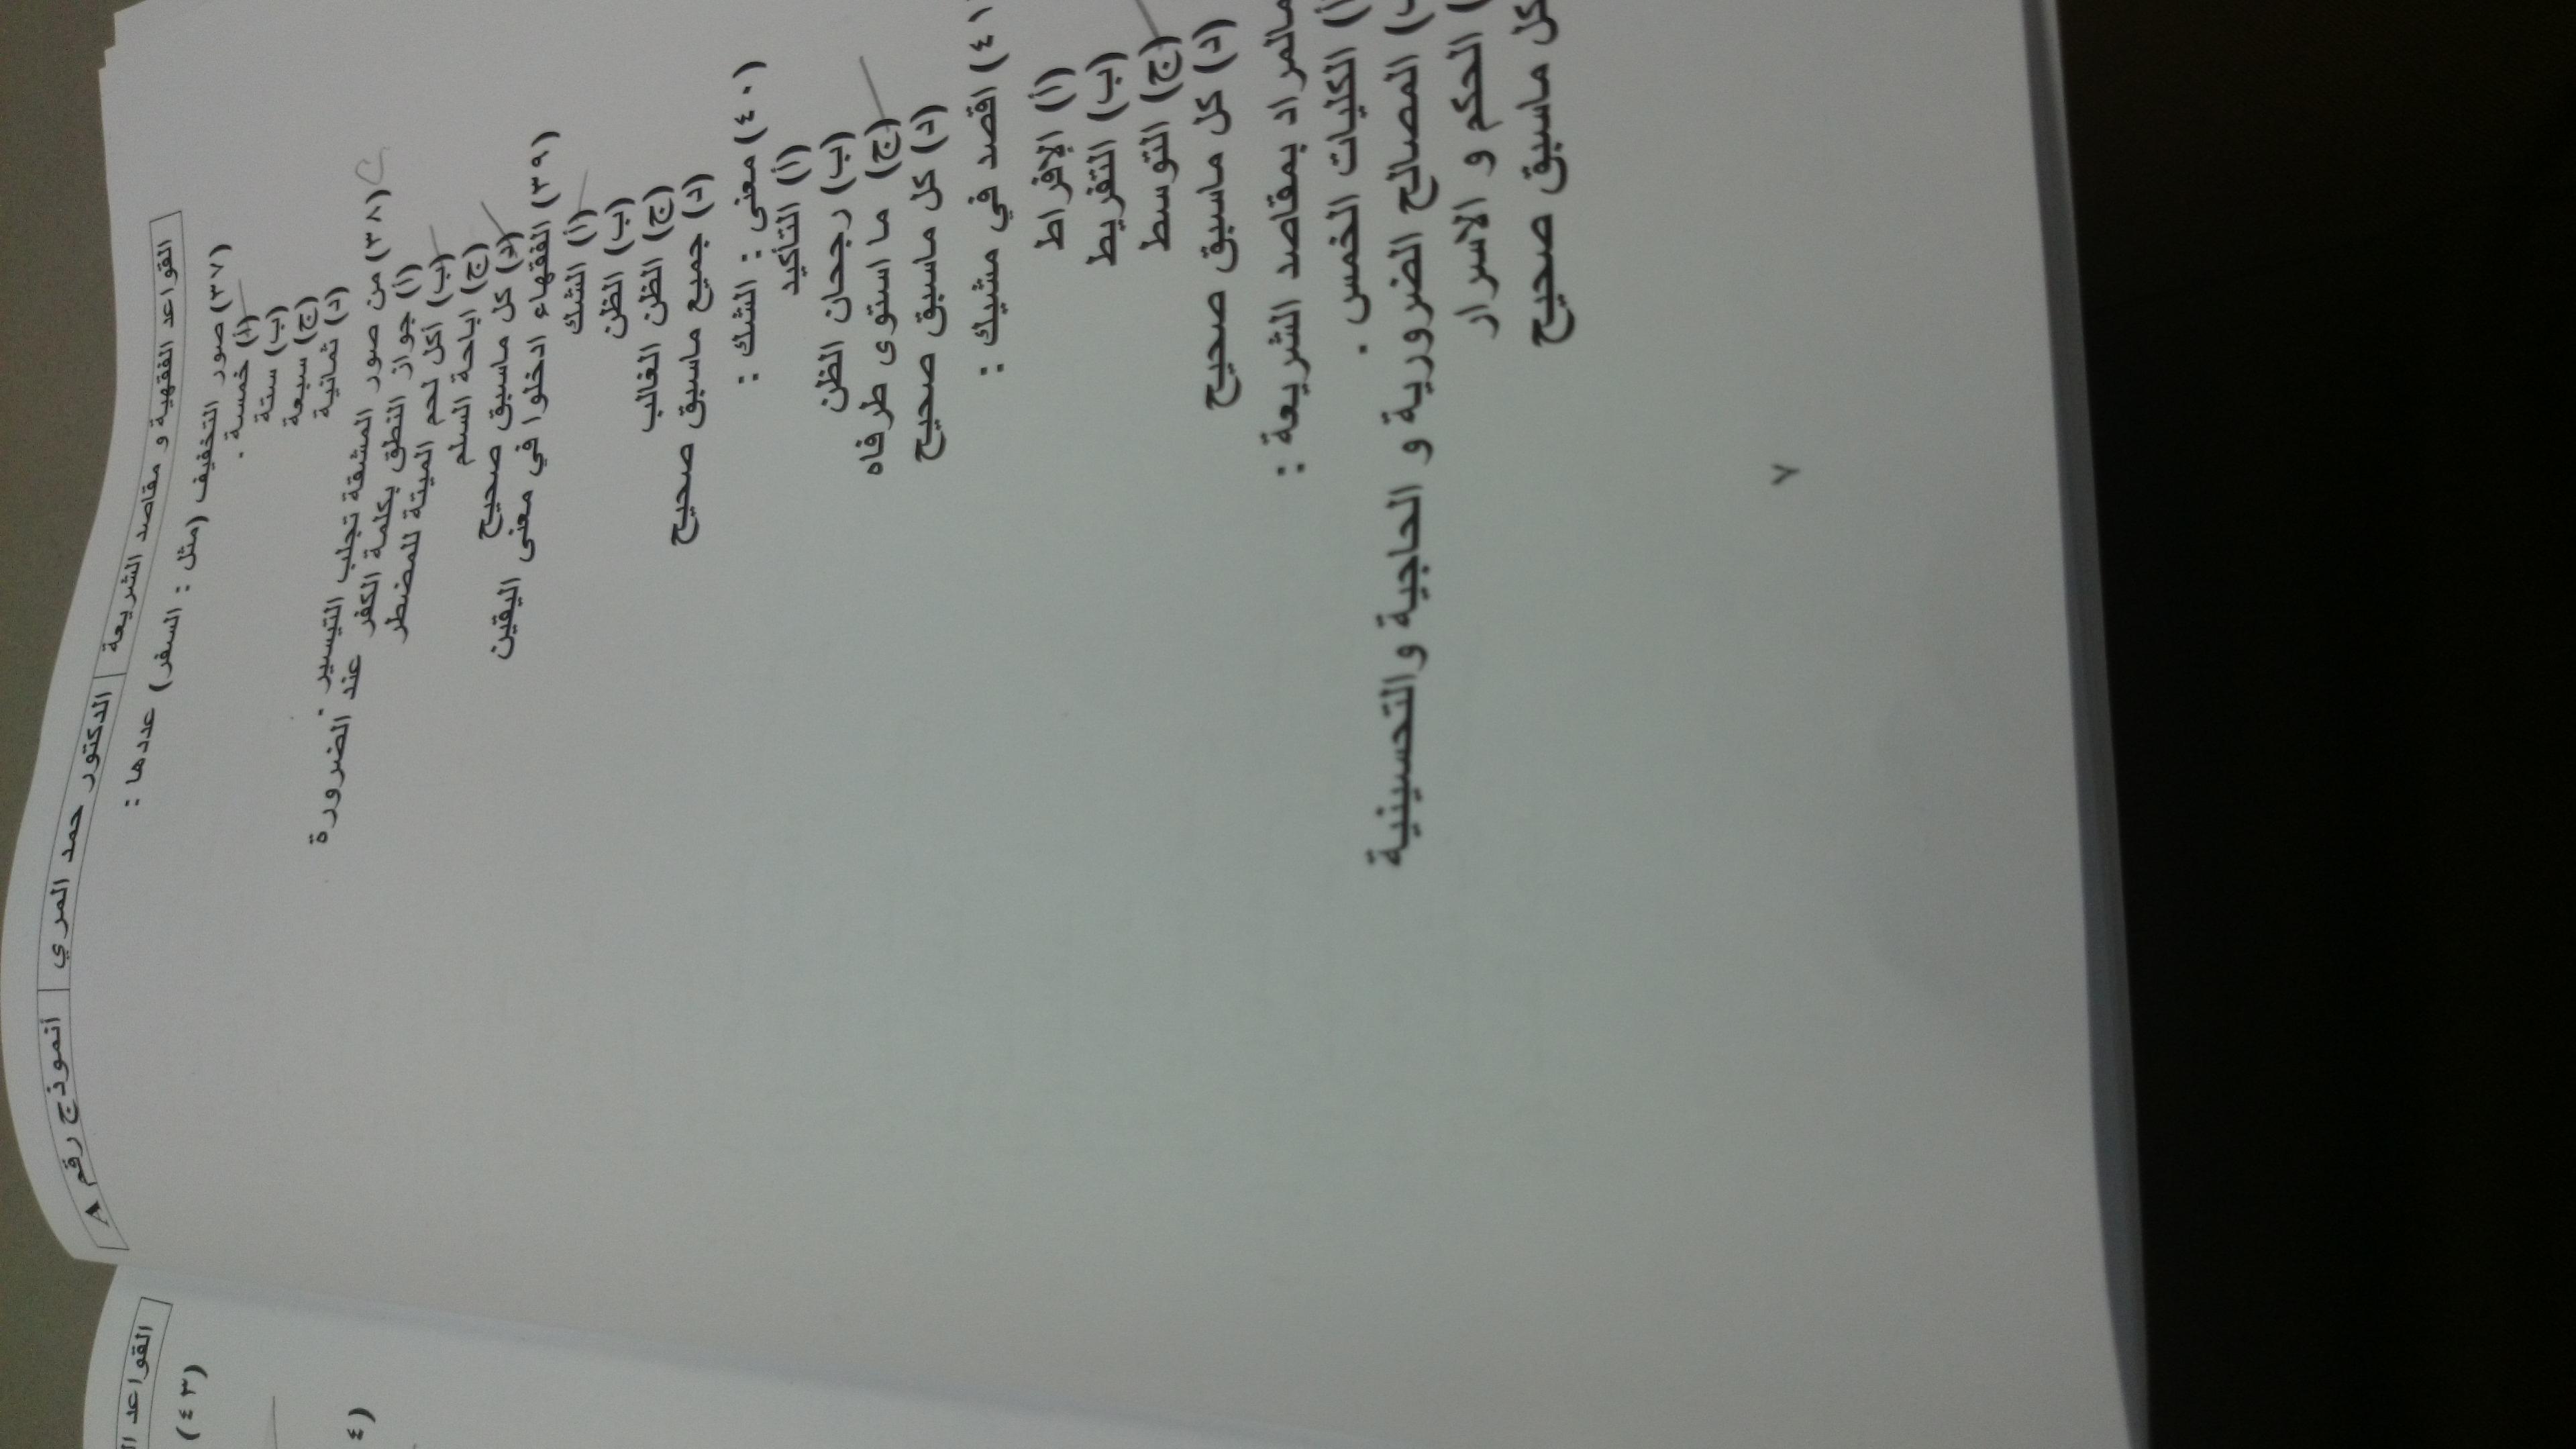 القواعد الفقهية و مقاصد الشريعة | الدكتور حمد المري | أنموذج رقم A
٣٧) صور التخفيف (مثل : السفر) عددها :
(أ) خمسة .
(ب) ستة
(ج) سبعة
(د) ثمانية
٣٨) من صور المشقة تجلب التيسير .
(أ) جواز النطق بكلمة الكفر عند الضرورة
(ب) أكل لحم الميتة للمضطر
(ج) اباحة السلم
(د) كل ماسبق صحيح
٣٩) الفقهاء ادخلوا في معنى اليقين
(أ) الشك
(ب) الظن
(ج) الظن الغالب
(د) جميع ماسبق صحيح
٤٠) معنى : الشك :
(أ) التأكيد
(ب) رجحان الظن
(ج) ما استوى طرفاه
(د) كل ماسبق صحيح
٤١) اقصد في مشيك :
(أ) الإفراط
(ب) التفريط
(ج) التوسط
(د) كل ماسبق صحيح
مالمراد بمقاصد الشريعة :
(أ) الكليات الخمس .
ب) المصالح الضرورية و الحاجية والتحسينية
) الحكم و الاسرار
كل ماسبق صحيح
٧
القواعد
(٤٣
(٤